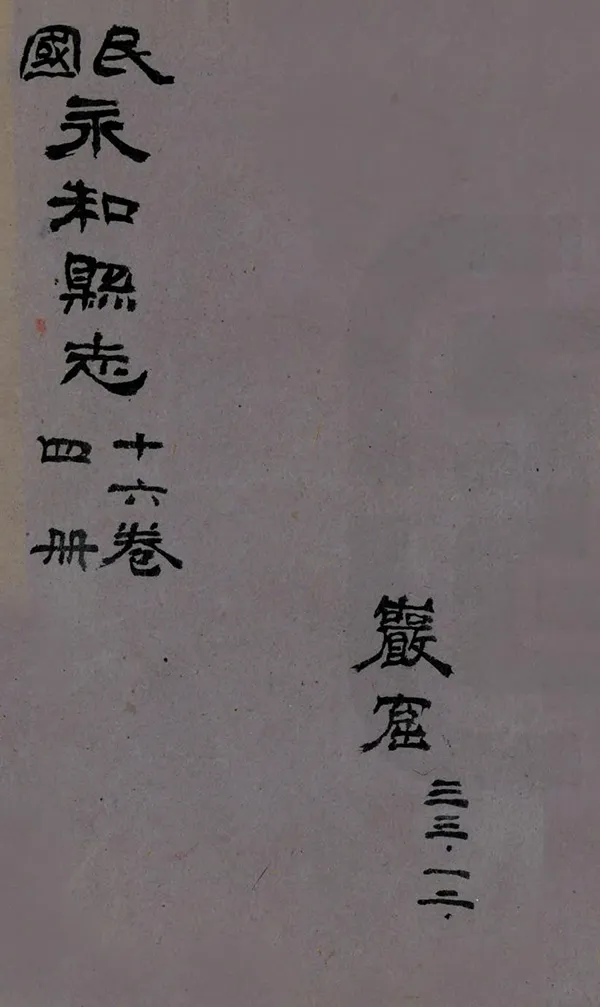 民國永和縣志
十六卷
四册
巖窟
三三·一二·